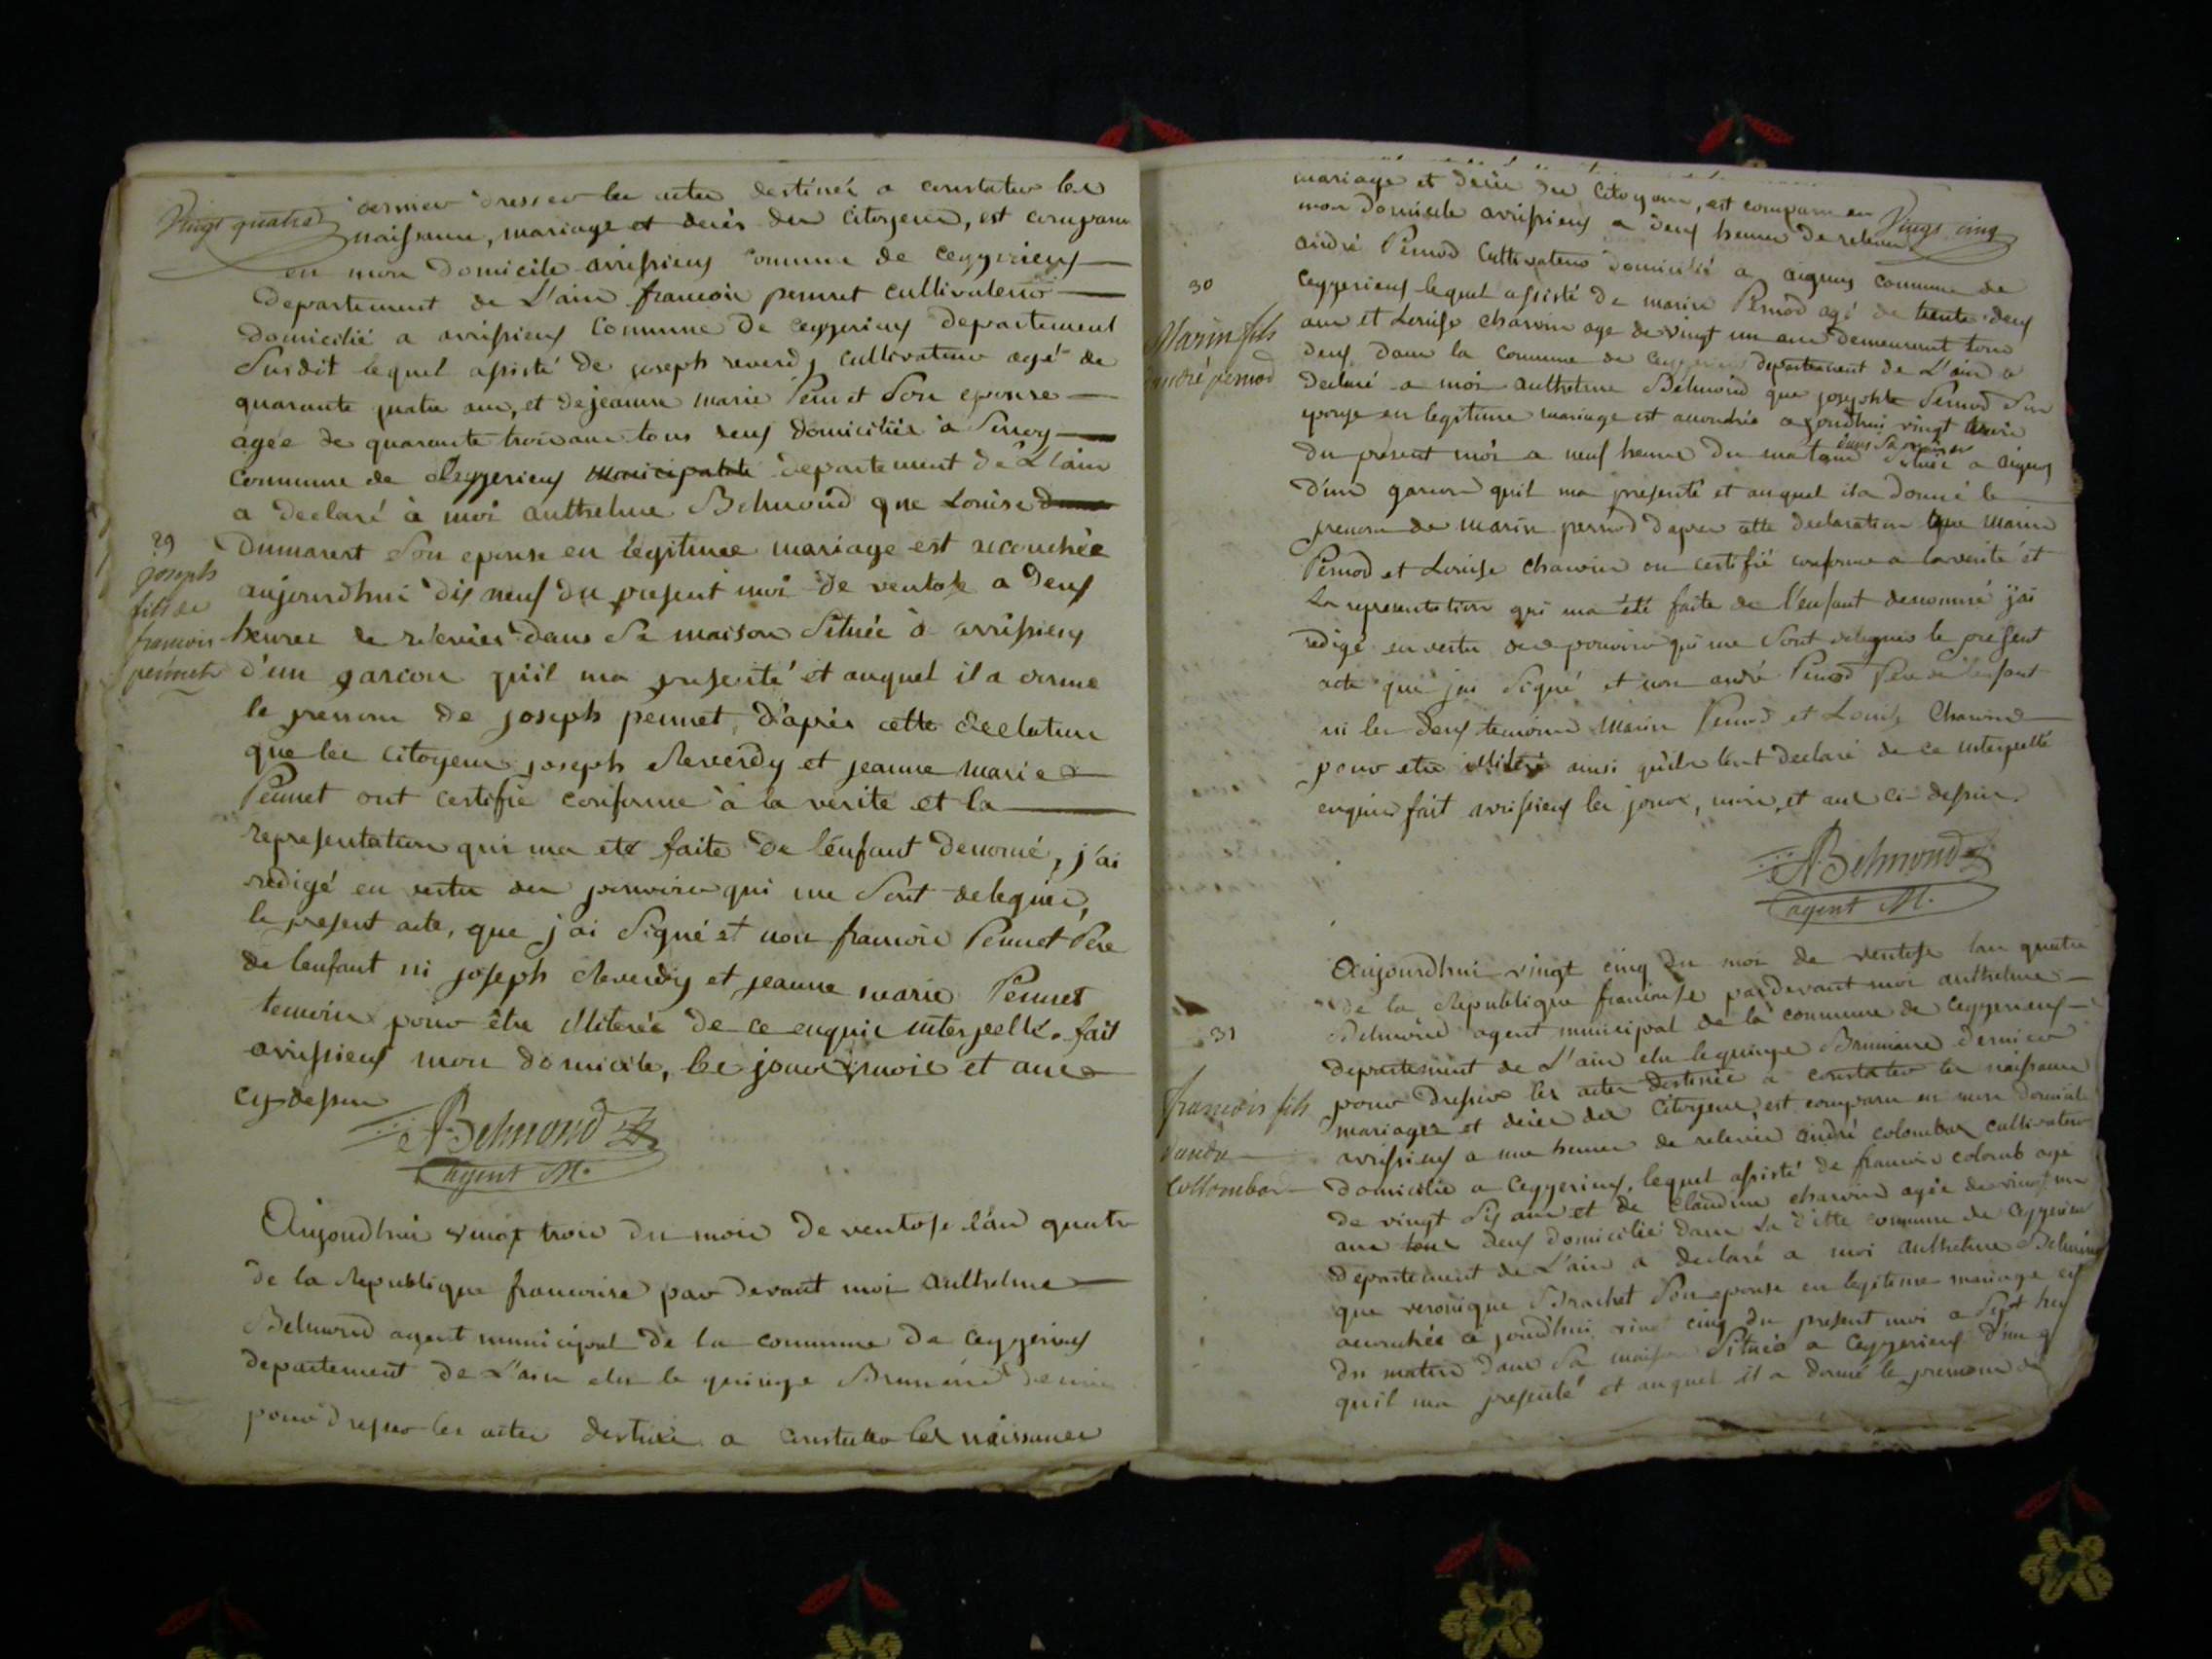 Vingt quatre
dernier dresser les actes destinés a constater les
naissance, mariage et decès des citoyens, est comparu
en mon domicile arrissieux commune de ceyzerieux
departement de L'ain francois pennet cultivateur
domicilié a arrissieux Commune De ceyzerieux departement
Susdit lequel assisté De joseph reverdy cultivateur agé de
quarante quatre ans, et de jeanne marie Pennet Son epouse
agée de quarante trois ans tous deux domiciliés à
commune de Ceyzerieux municipalité departement de L'ain
a declaré à moi anthelme Belmond que Louise
29
joseph
fils de
francois
pennet
Dumarest Son epouse en legitime mariage est acouchée
aujourdhui dix neuf du present moi de ventose a deux
heures de relevée dans Sa maison Située à arrissieux
d'un garcon qu'il ma presenté et auquel il a donné
le prenom de joseph pennet, d'après cette declation
que les citoyens joseph Reverdy et jeanne marie
Pennet ont certifié conforme à la verité et la
representation qui ma eté faite de l'enfant denomé, j'ai
redigé en vertu des pouvoirs qui me Sont delegués,
le present acte, que j'ai Signé et non francois Pennet Pere
de lenfant ni joseph Reverdy et jeanne marie Pennet
temoins pour être illiterés de ce enquis interpellé. fait
arrissieux mon domicile, les jour, mois et ans
cy dessus
ABelmond
agent M.
Aujourdhui vingt trois du mois de ventose l'an quatre
de la Republique francoise par devant moi anthelme
Belmond agent municipal de la commune de Ceyzerieux
departement de L'ain elu le quinze Brumaire dernier
pour dresser les actes destinés a constater les naissances
Vingt cinq
mariage et decès des Citoyens, est comparu en
mon domicile arrissieux a deux heures de relevée
andré Pernod Cultivateur domicilié a aignoz commune de
30
Marin fils
andré pernod
Ceyzerieux lequel assisté de marin Pernod agé de trente deux
ans et Louise charvin age de vingt un ans demeurant tous
deux dans la commune de Ceyzerieux departement de L'ain a
declaré a moi anthelme Belmond que josephte Pernod Son
epouse en legitime mariage est acouchée ajourdhui vingt trois
du present mois a neuf heures du matin dans Sa maison Située a aignoz
d'un garcon quil ma presenté et auquel il a donné le
prenom de marin pernod d'apres cette declaration que marin
Pernod et Louise charvin on certifié conforme a la verité et
La representation qui ma été faite de l'enfant denommé j'ai
redigé en vertu des pouvoirs qui me Sont delegués le present
acte que jai Signé et non andré Pernod Pere de lenfant
ni les deux temoins marin Pernod et Louise Charvin
pour etre illiteré ainsi quils lont declaré de ce interpellé
enquis fait arrissieux les jour, mois, et ans ci dessus.
ABelmond
agent M.
Aujourdhui vingt cinq du mois de ventose lan quatre
de la Republique francoise pardevant moi anthelme
31
Belmond agent municipal de la commune de Ceyzerieux
departement de L'ain elu le quinze Brumaire dernier
francois fils
d'andre
Collombar
pour dresser les actes destinés a constater les naissance
mariages et decès des citoyens, est comparu en mon domicile
arrissieux a une heure de relevée andré colombar cultivateur
domicilié a Ceyzerieux, lequel assisté de francois colomb agé
de vingt six ans et de Claudine charvin agée de vingt un
ans tous deux domiciliés dans La ditte commune de Ceyzerieux
departement de L'ain a declaré a moi anthelme Belmond
que veronique Brachet Son epouse en legitime mariage est
acouchée ajourdhui vint cinq du present moi a Sept heu
du matin dans Sa maison Située a Ceyzerieux d'un g
quil ma presenté et auquel il a donné le prenom de